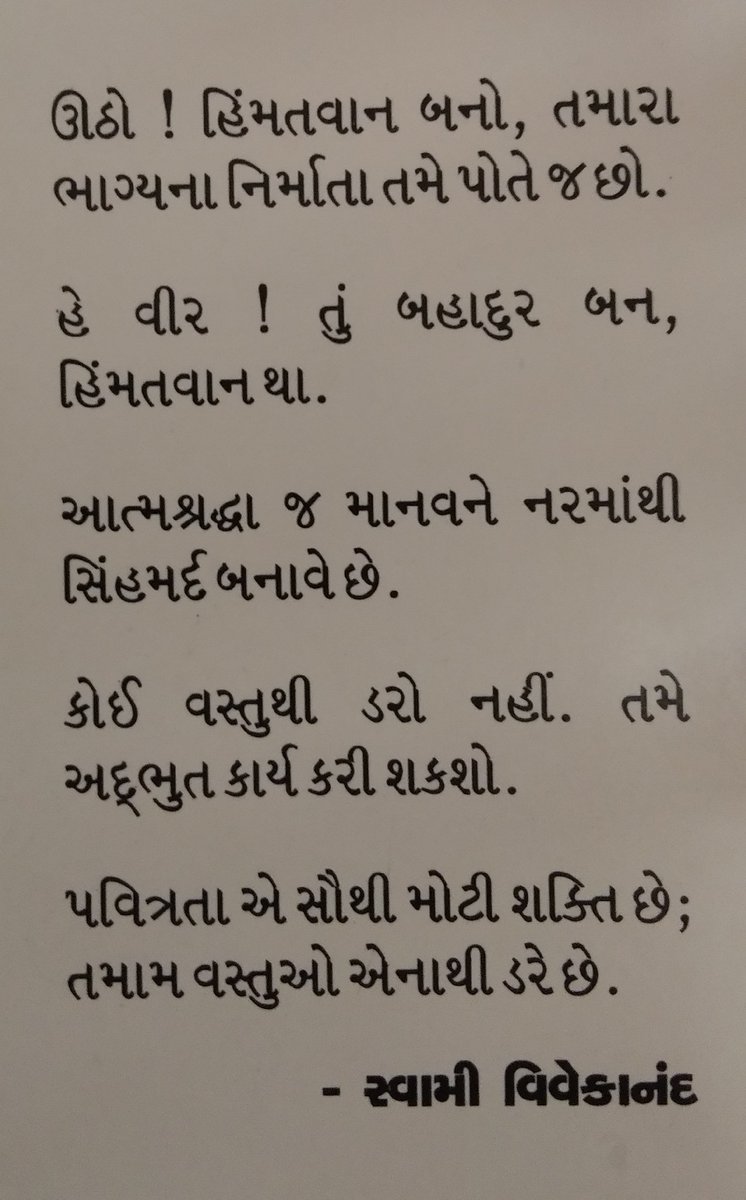 ઊઠો ! હિંમતવાન બનો, તમારા
ભાગ્યના નિર્માતા તમે પોતે જ છો.
હે વીર ! તું બહાદુર બન,
હિંમતવાન થા.
આત્મશ્રદ્ધા જ માનવને નરમાંથી
સિંહમર્દ બનાવે છે.
કોઈ વસ્તુથી ડરો નહીં. તમે
અદ્ભુત કાર્ય કરી શકશો.
પવિત્રતા એ સૌથી મોટી શક્તિ છે;
તમામ વસ્તુઓ એનાથી ડરે છે.
- સ્વામી વિવેકાનંદ